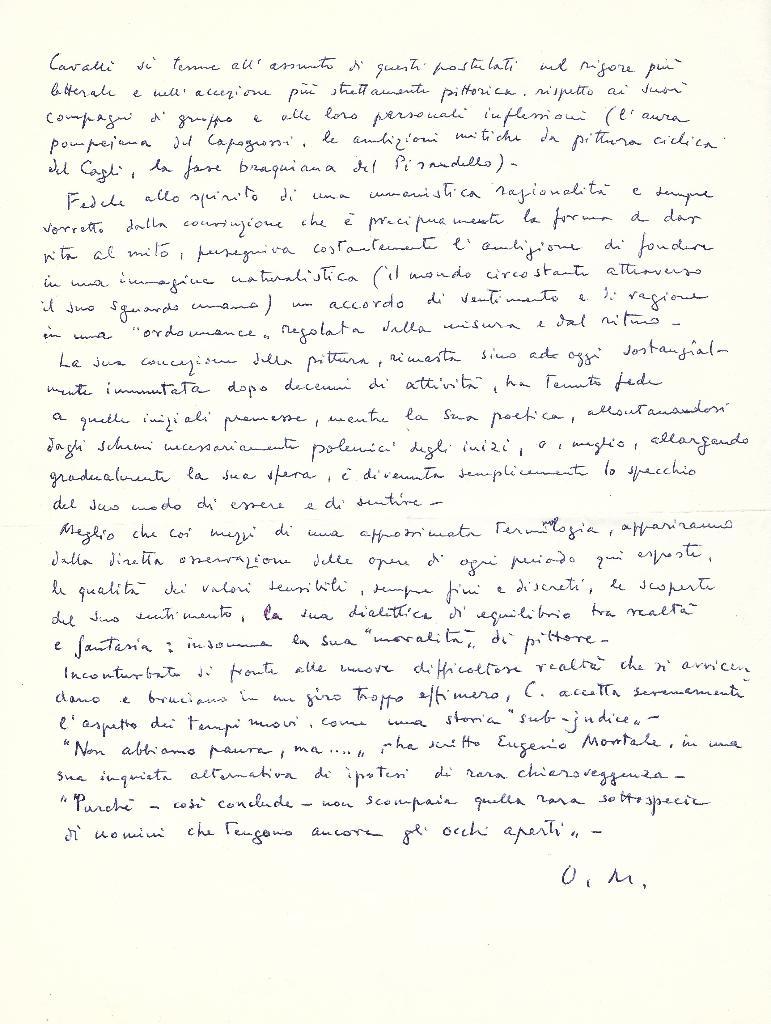 Cavalli si tenne all'assunto di questi postulati nel rigore più
letterale e nell'accezione più strettamente pittorica. rispetto ai suoi
compagni di gruppo e alle loro personali inflessioni (l'aura
pompejana del Capogrossi, le ambizioni mitiche da pittura ciclica
del Cagli, la fase braquiana del Pirandello) -
Fedele allo spirito di una umanistica razionalità e sempre
sorretto dalla convinzione che è precipuamente la forma a dar
vita al mito, perseguiva costantemente l'ambizione di fondere
in una immagine naturalistica (il mondo circostante attraverso
il suo sguardo umano) un accordo di sentimento e di ragione
in una "ordonnance" regolata dalla misura e dal ritmo -
La sua concezione della pittura, rimasta sino ad oggi sostanzial-
mente immutata dopo decenni di attività, ha tenuto fede
a quelle iniziali premesse, mentre la sua poetica, allontanandosi
dagli schemi necessariamente polemici degli inizi, o, meglio, allargando
gradualmente la sua sfera, è divenuta semplicemente lo specchio
del suo modo di essere e di sentire -
Meglio che coi mezzi di una approssimata terminologia, appariranno
dalla diretta osservazione delle opere di ogni periodo qui esposte,
le qualità dei valori sensibili, sempre fini e discreti, le scoperte
del suo sentimento, la sua dialettica di equilibrio tra realtà
e fantasia: insomma la sua "moralità" di pittore -
Inconturbato di fronte alle nuove difficoltose realtà che si avvicen
dano e bruciano in un giro troppo effimero, C. accetta serenamente
l'aspetto dei tempi nuovi, come una storia "sub-judice" -
"Non abbiamo paura, ma....", ha scritto Eugenio Montale, in una
sua inquieta alternativa di ipotesi di rara chiaroveggenza -
"Purché - così conclude - non scompaia quella rara sottospecie
di uomini che tengono ancora gli occhi aperti" -
O. M.